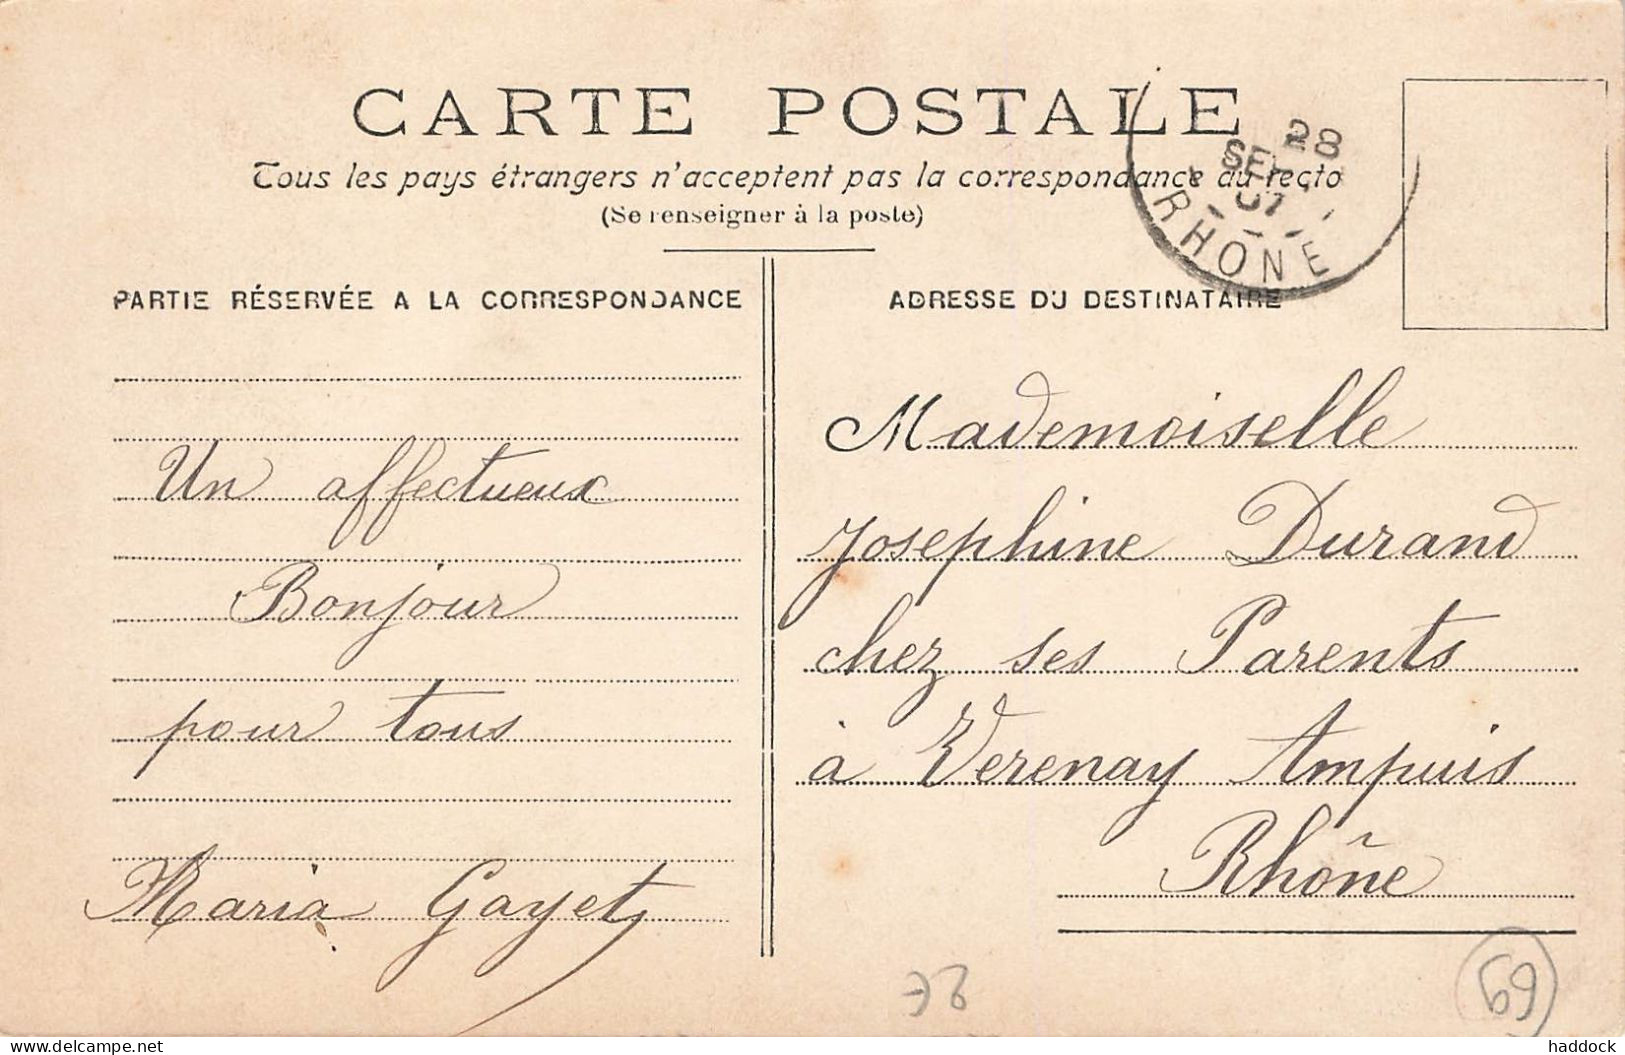 CARTE POSTALE
Tous les pays étrangers n'acceptent pas la correspondance au recto
(Se renseigner à la poste)
28
SEPT
07
RHONE
PARTIE RÉSERVÉE A LA CORRESPONDANCE
Un affectueux
Bonjour
pour tous
Maria Gayet
ADRESSE DU DESTINATAIRE
Mademoiselle
Josephine Durand
chez ses Parents
à Verenay Ampuis
Rhône
69
delcampe.net
haddock